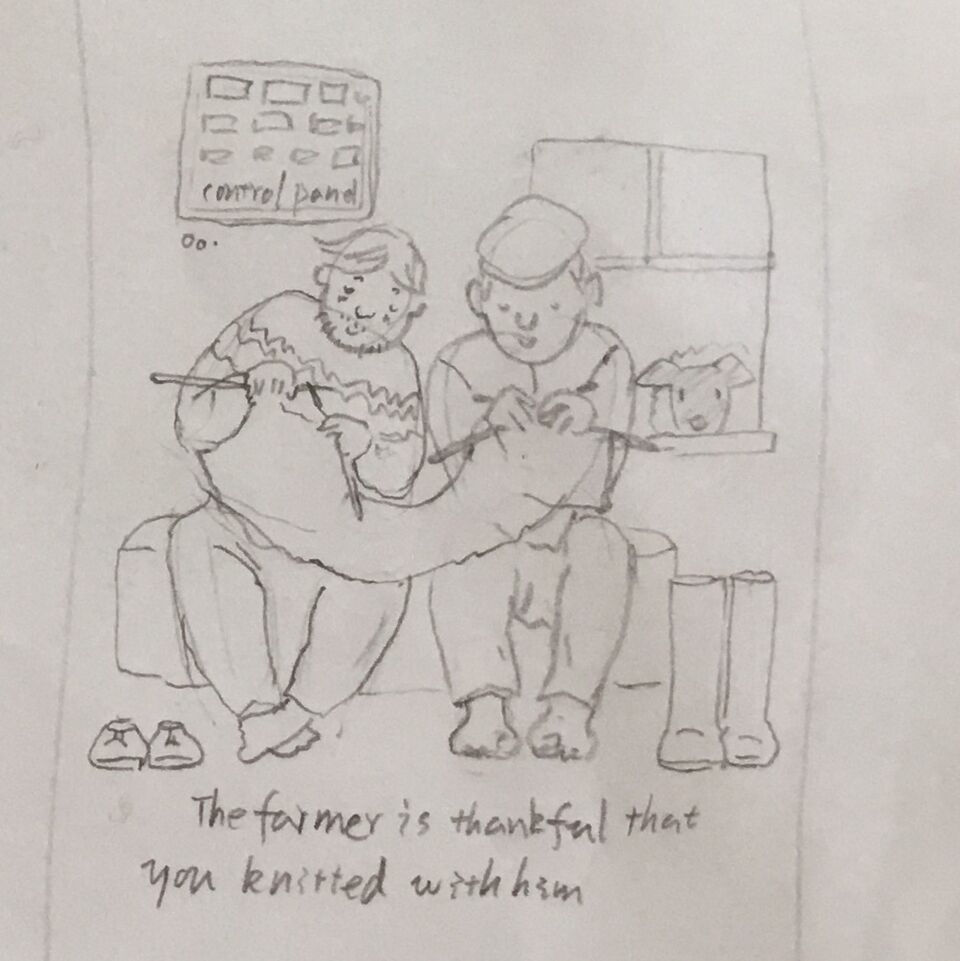 control panel
The farmer is thankful that
you knitted with him